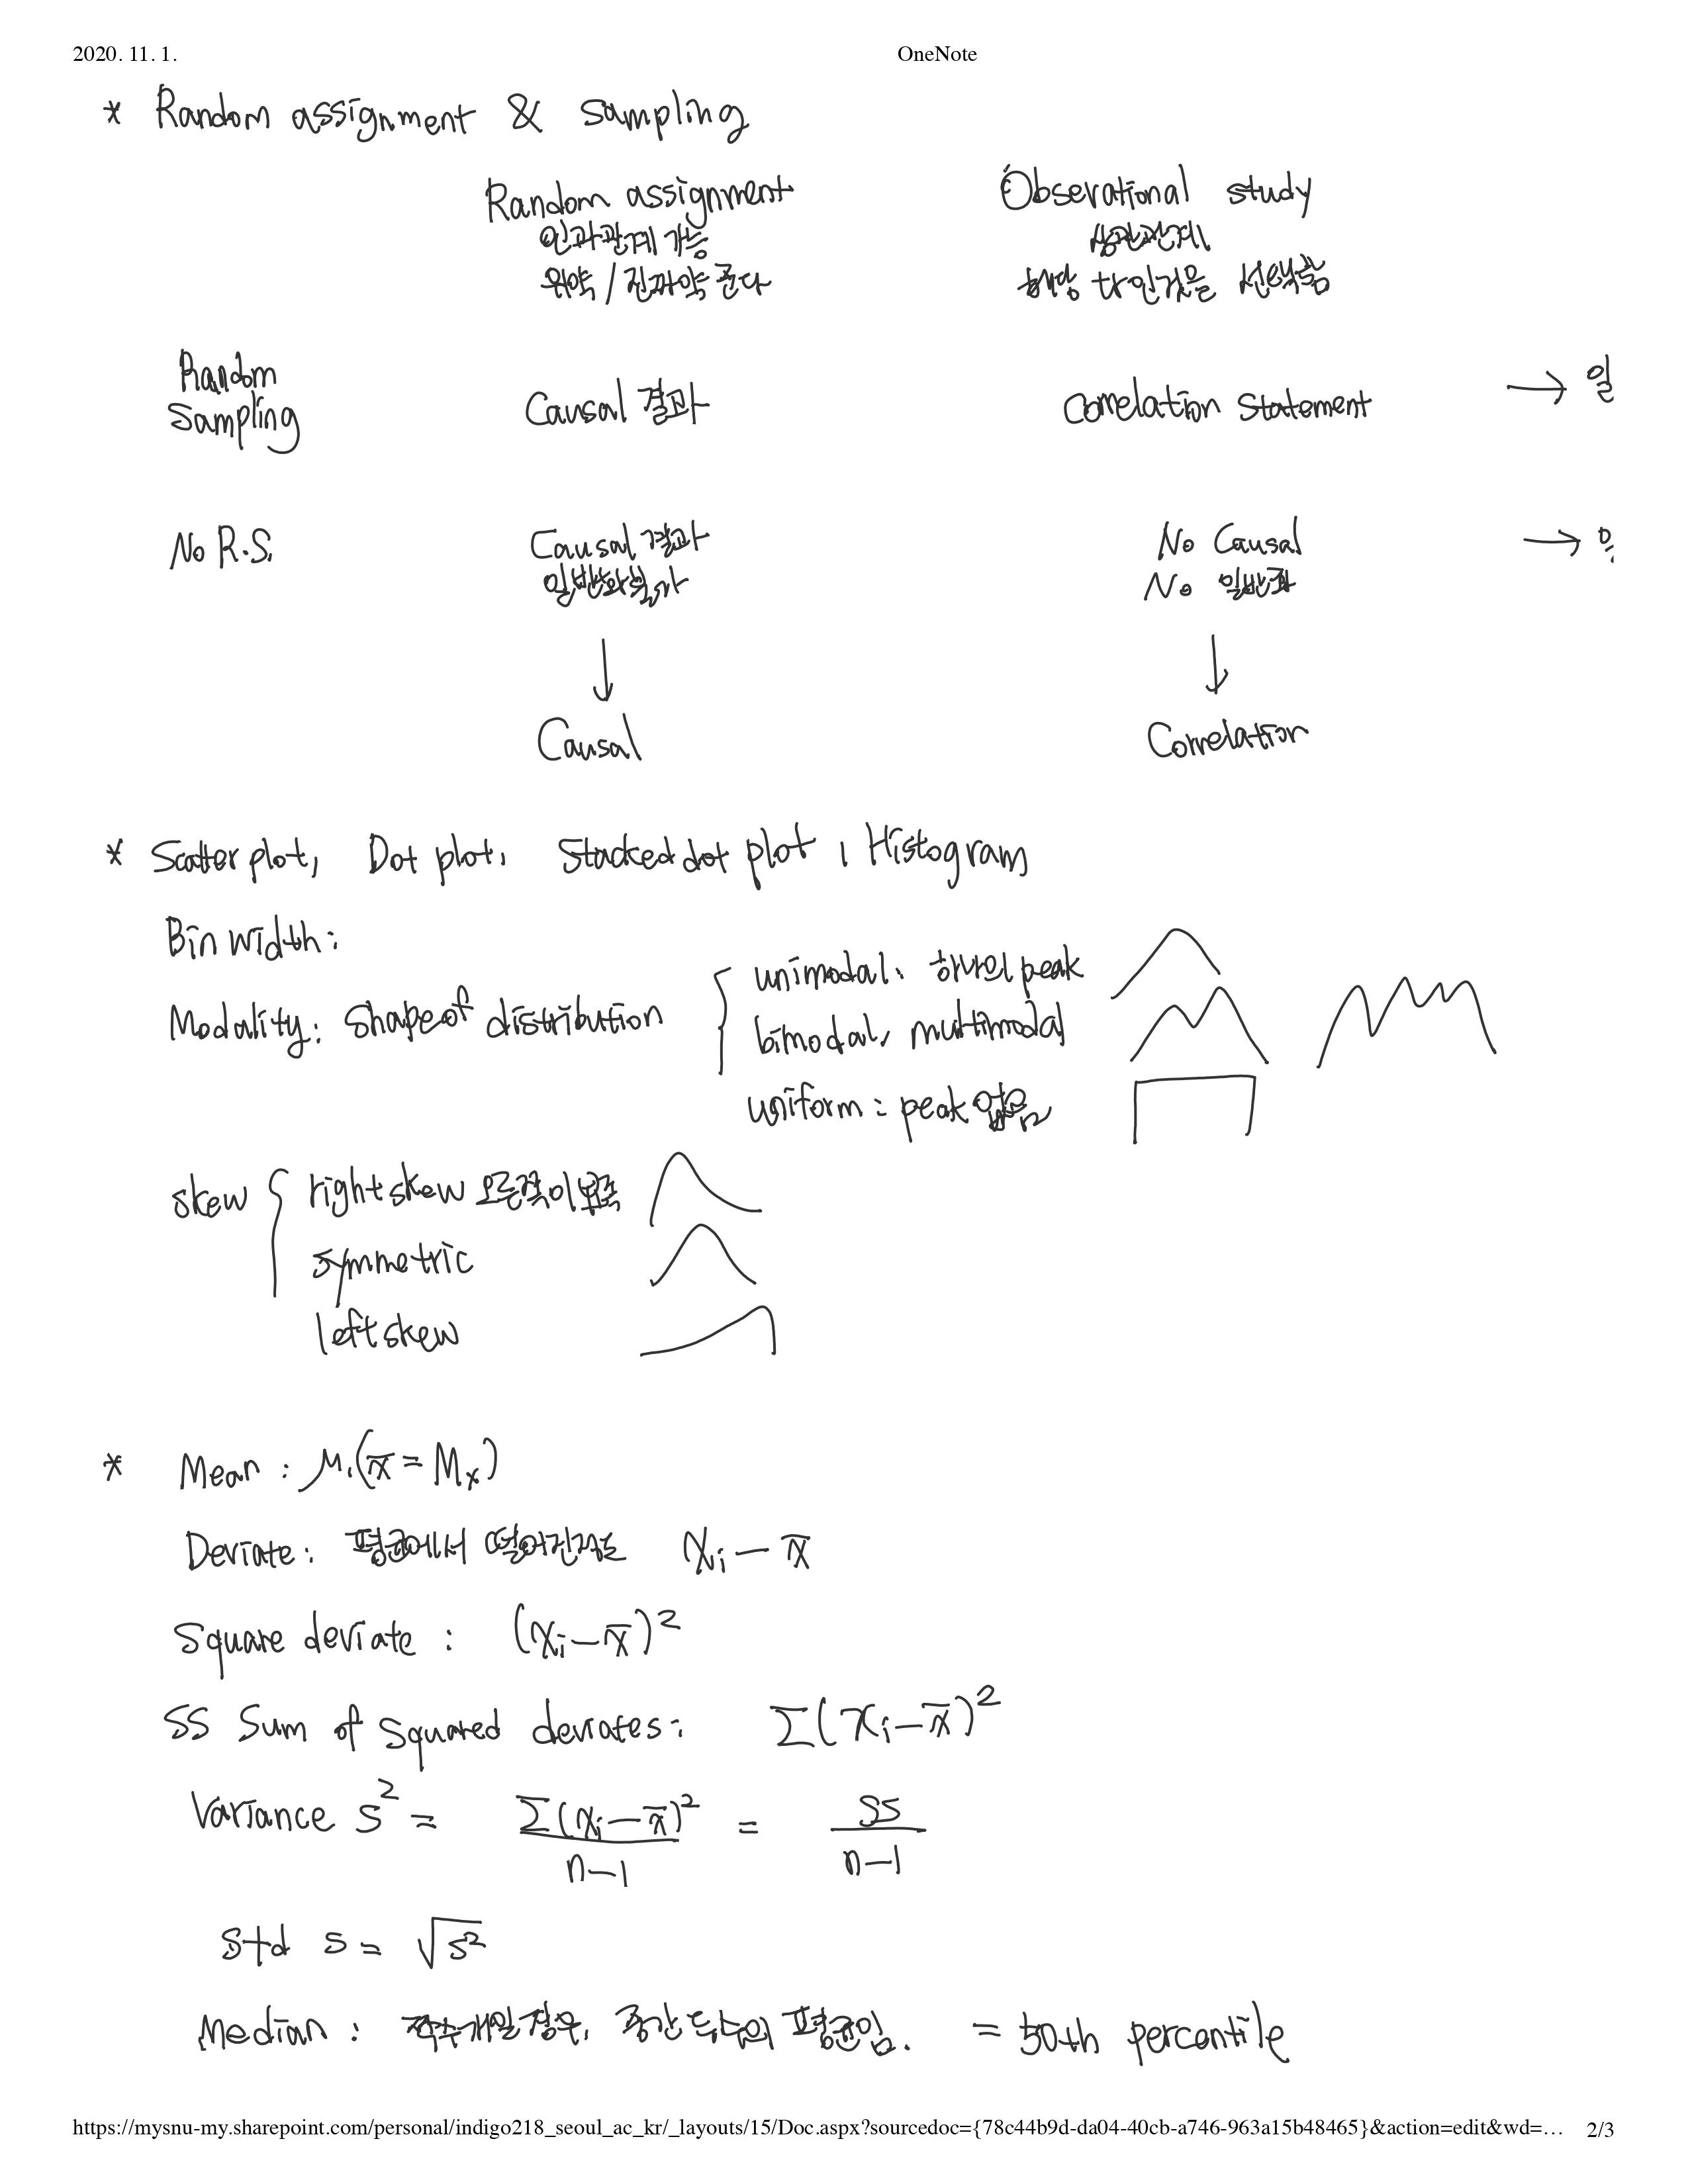 2020. 11. 1.
OneNote
* Random assignment & sampling
Random assignment
Obserational study
인과관계 가능
상관관계
위약 / 진짜약 준다
해당 타인것을 선택함
Random
Sampling
Causal 결과
Correlation Statement
→ 일
No R.S.
Causal 결과
No Causal
→
일반화불가
No 일반화
↓
↓
Causal
Correlation
* Scatter plot, Dot plot, Stacked dot plot, Histogram
Bin width:
unimodal: 하나의 peak
Modality: Shape of distribution
bimodal, multimodal
uniform: peak 없음
skew
right skew 오른쪽이
symmetric
left skew
* Mean: μ, (x̄ = Mx)
Deviate: 평균에서 떨어진정도 xi − x̄
Square deviate: (xi − x̄)²
SS Sum of squared deviates: Σ(xi − x̄)²
Variance s² = Σ(xi − x̄)² / n−1 = SS / n−1
Std s = √s²
Median: 짝수개일경우, 중간 두수의 평균임. = 50th percentile
https://mysnu-my.sharepoint.com/personal/indigo218_seoul_ac_kr/_layouts/15/Doc.aspx?sourcedoc={78c44b9d-da04-40cb-a746-963a15b48465}&action=edit&wd=… 2/3